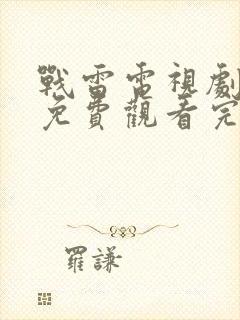 戰雷電視劇
免費觀看完
羅謙